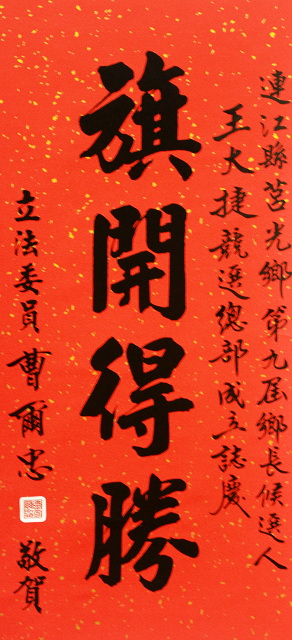 連江縣莒光鄉第九屆鄉長候選人
王大捷競選總部成立誌慶
旗開得勝
立法委員曹爾忠
敬賀